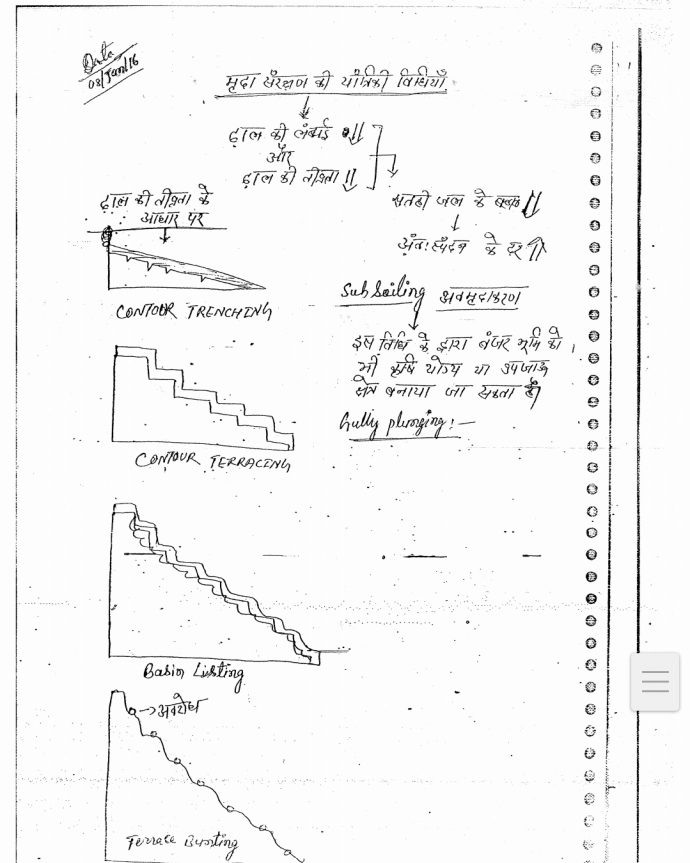 Date
03/Jan/16
मृदा संरक्षण की यांत्रिकी विधियाँ
ढ़ाल की लंबाई
और
ढ़ाल की तीव्रता
सतही जल के
अंतः स्पंदन के दर
ढ़ाल की तीव्रता के
आधार पर
CONTOUR TRENCHING
Sub Soiling अवमृदाकरण
इस विधि के द्वारा बंजर भूमि को
भी कृषि योग्य या उपजाऊ
क्षेत्र बनाया जा सकता है
Gully plunging:—
CONTOUR TERRACING
Basin Listing
अवरोध
Terrace Bunting